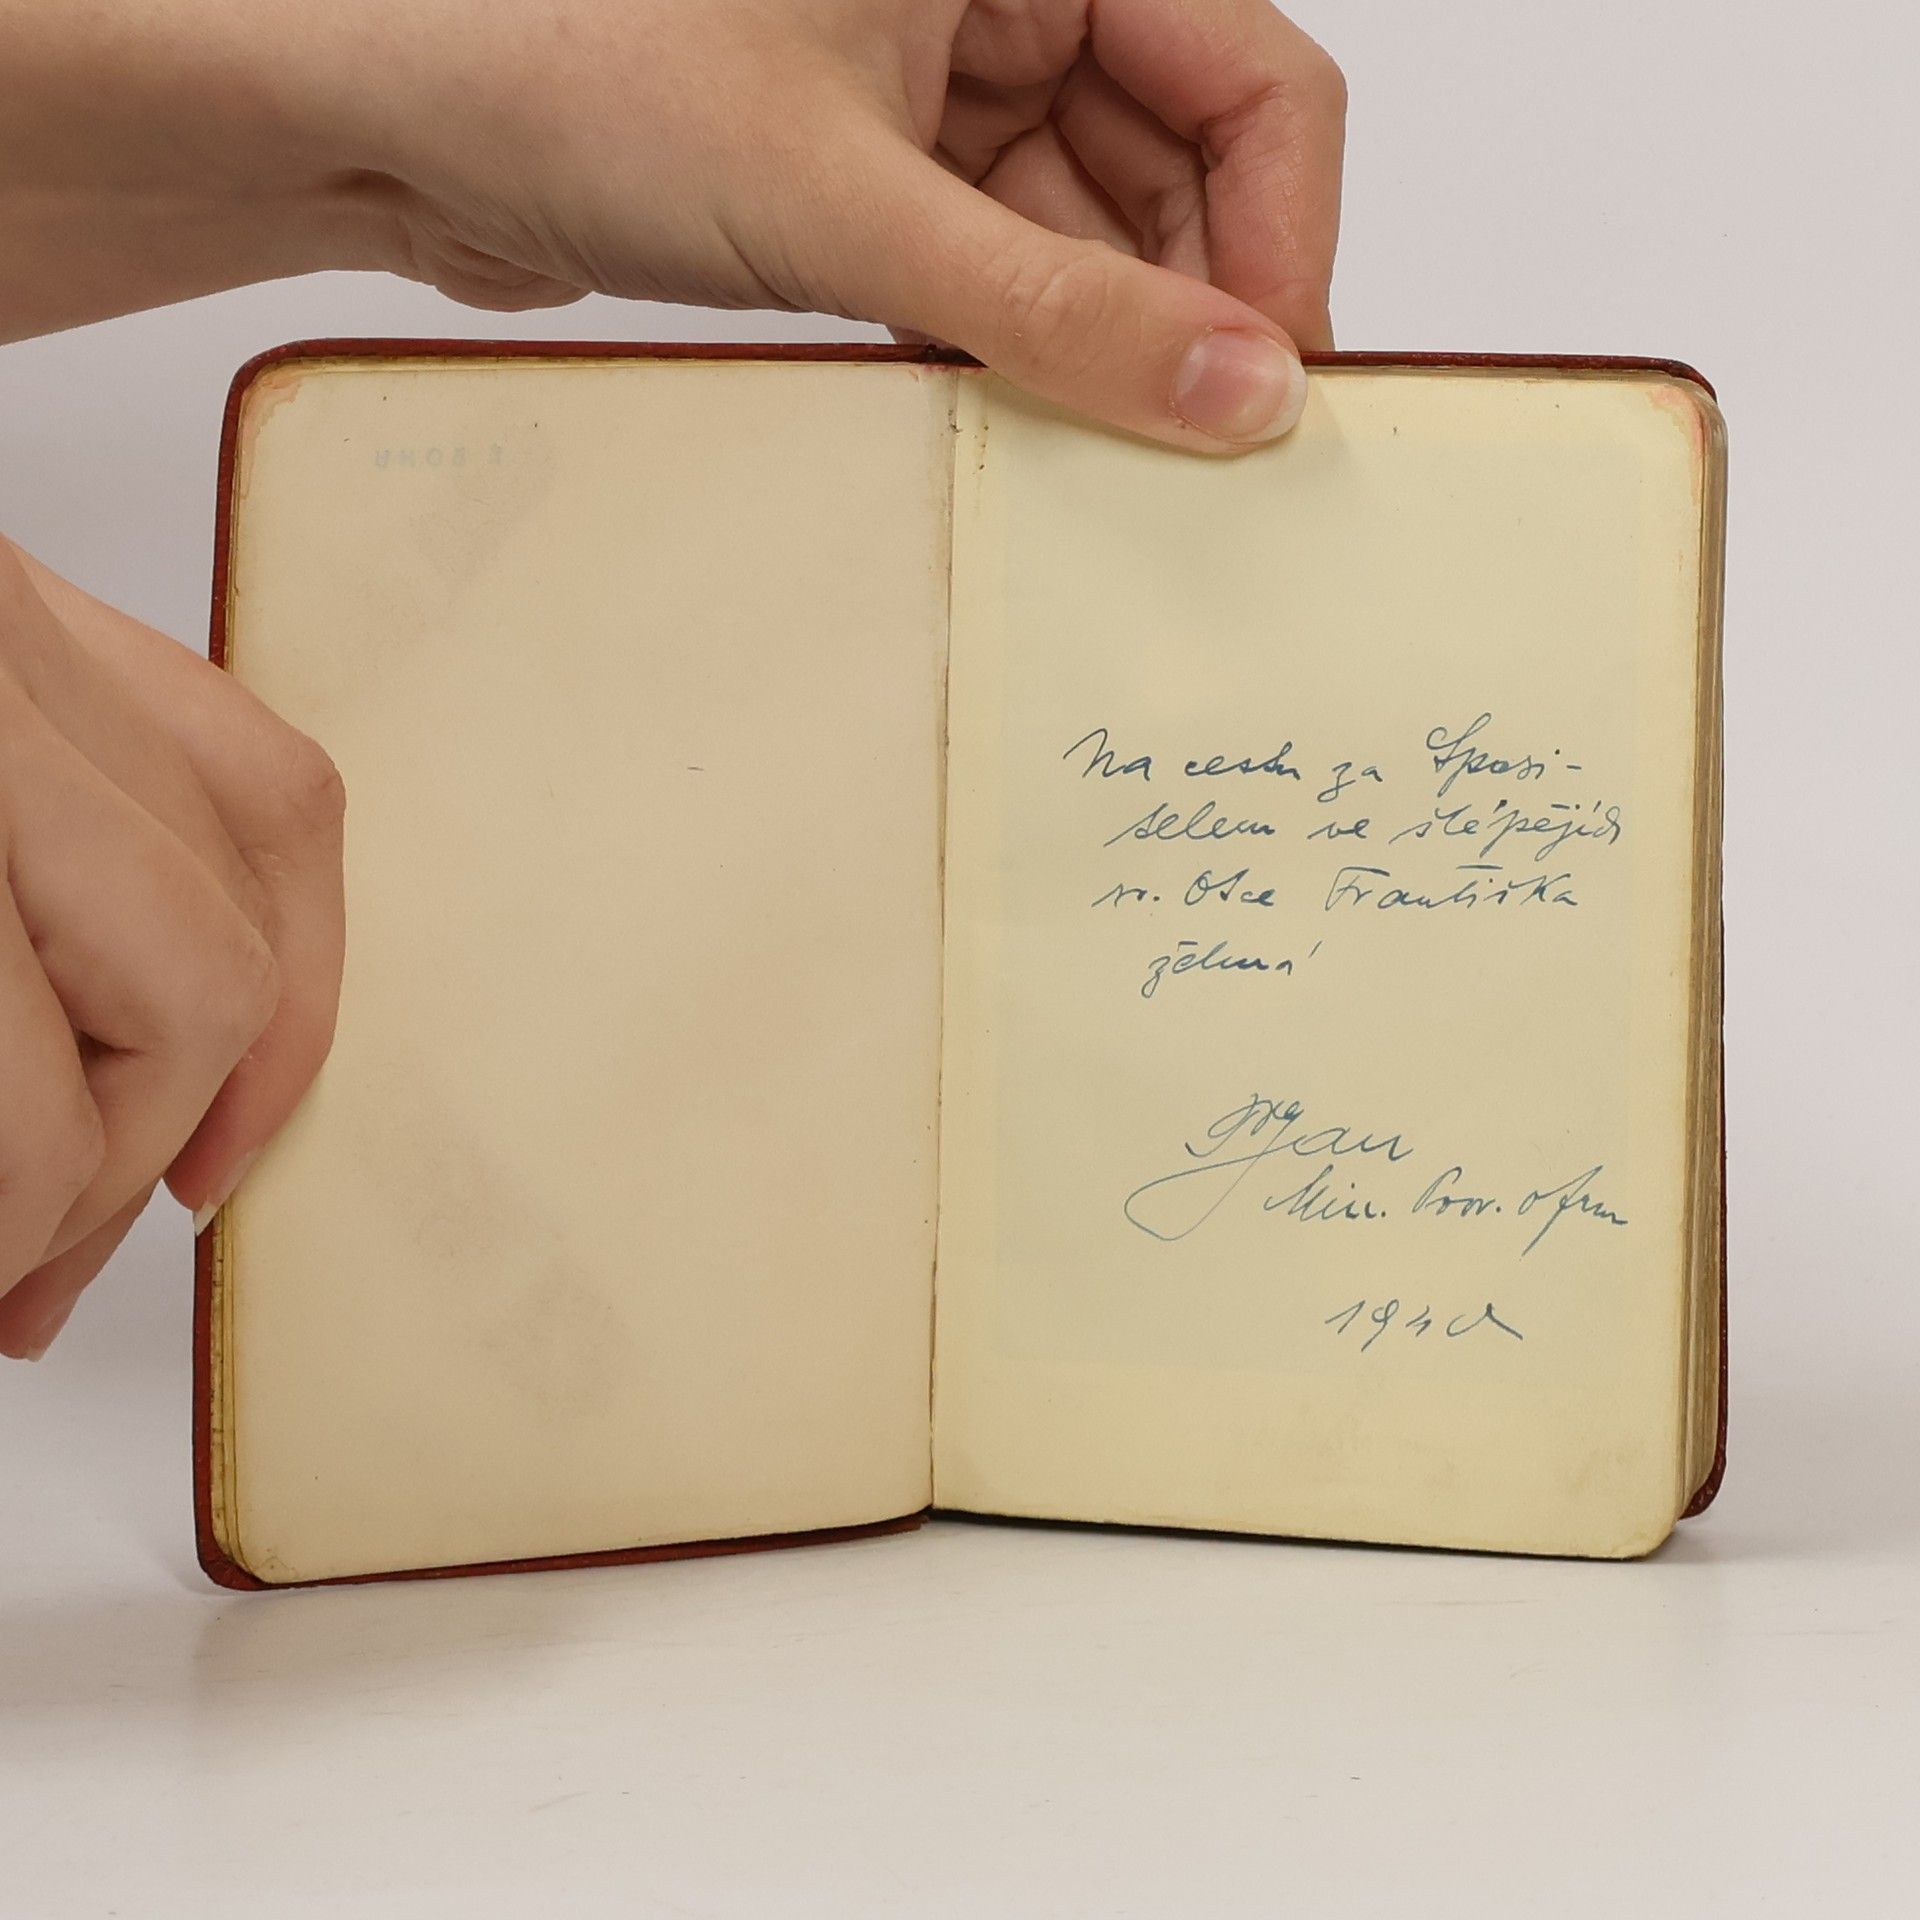 Na cestu za Spasi-
telem ve šlépějích
sv. Otce Františka
žehná
Min. Prov. ofm
1940